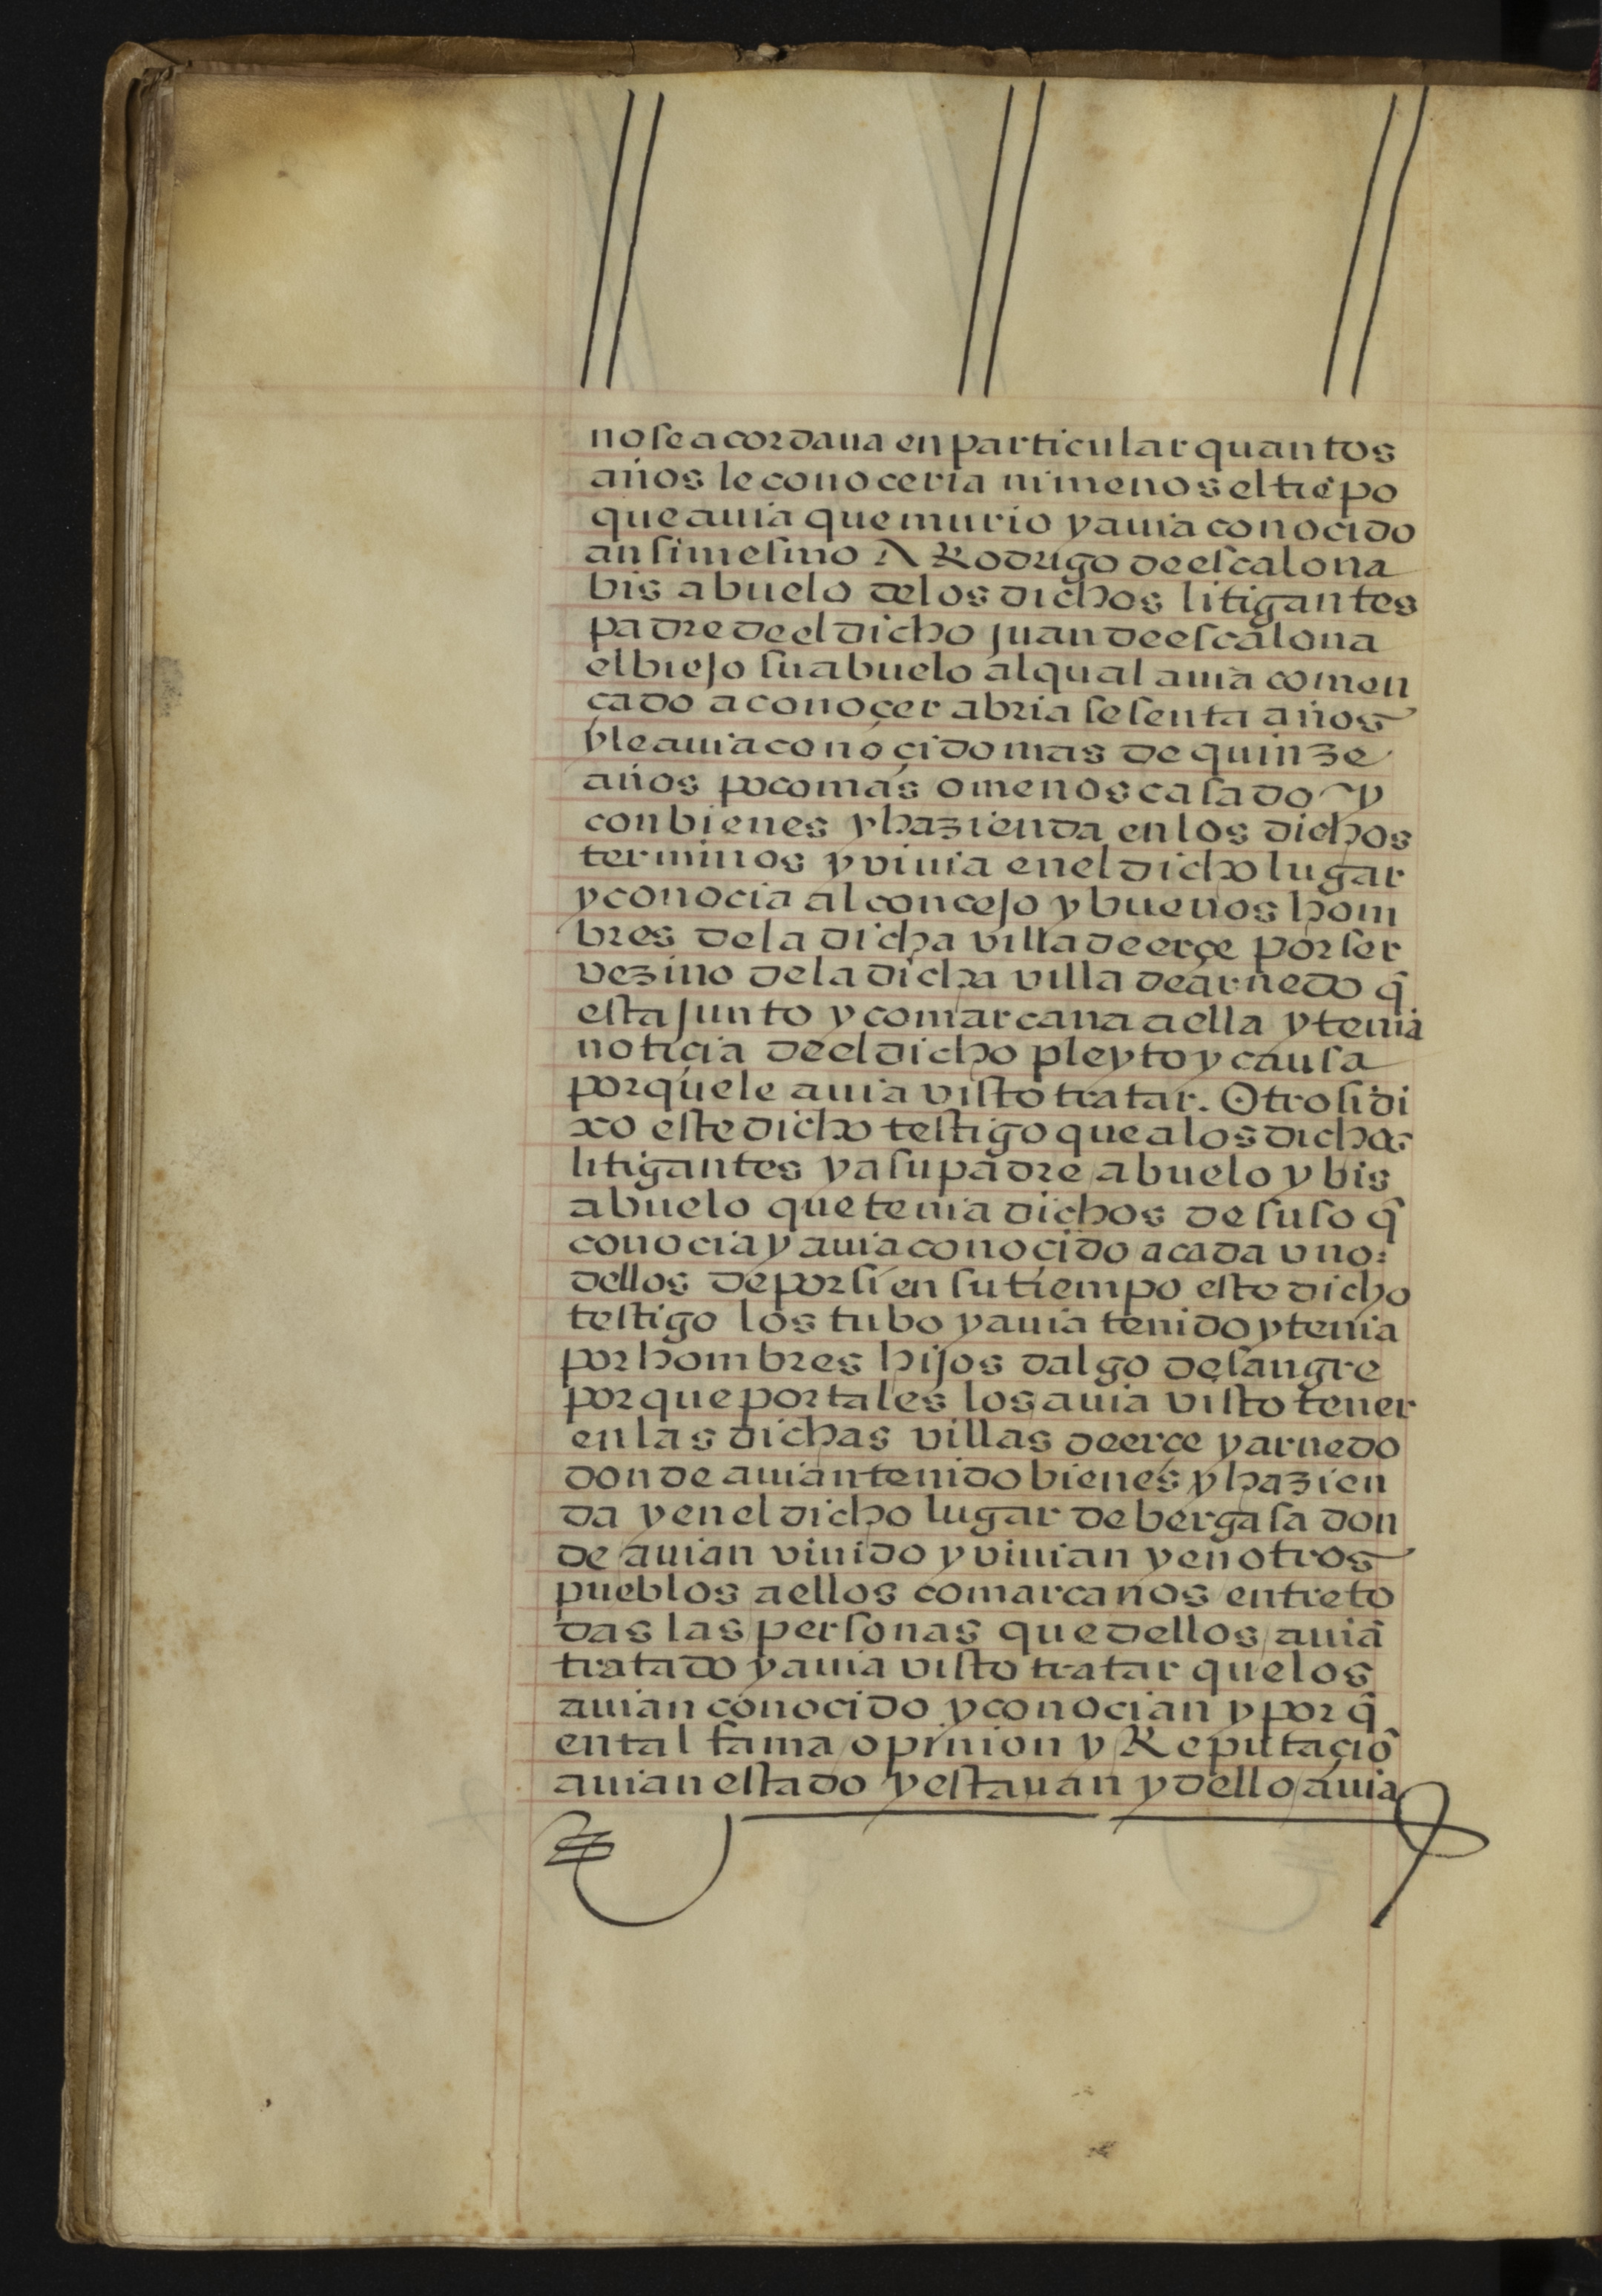 no se acordaua en particular quantos
años le conoceria ni menos el tiẽpo
que auia que murio y auia conocido
ansi mesmo A Rodrigo de escalona
bis abuelo de los dichos litigantes
padre de el dicho juan de escalona
el biejo su abuelo al qual auia comen
cado a conoçer abria sesenta años
y le auia conoçido mas de quinze
años poco mas o menos casado y
con bienes y hazienda en los dichos
terminos y viuia en el dicho lugar
y conocia al concejo y buenos hom
bres de la dicha villa de erçe por ser
vezino de la dicha villa de arnedo q̃
esta junto y comarcana a ella y tenia
noticia de el dicho pleyto y causa
porque le auia visto tratar. Otrosi di
xo este dicho testigo que a los dichos
litigantes y a su padre abuelo y bis
abuelo que tenia dichos de suso q̃
conocia y auia conocido a cada uno
dellos de por si en su tiempo este dicho
testigo los tubo y auia tenido y tenia
por hombres hijos dalgo de sangre
porque por tales los auia visto tener
en las dichas villas de erçe y arnedo
donde auian tenido bienes y hazien
da y en el dicho lugar de bergasa don
de auian viuido y viuian y en otros
pueblos a ellos comarcanos entre to
das las personas que dellos auiã
tratado y auia visto tratar que los
auian conocido y conocian y por q̃
en tal fama opinion y Reputaçiõ
auian estado y estauan y dello auia